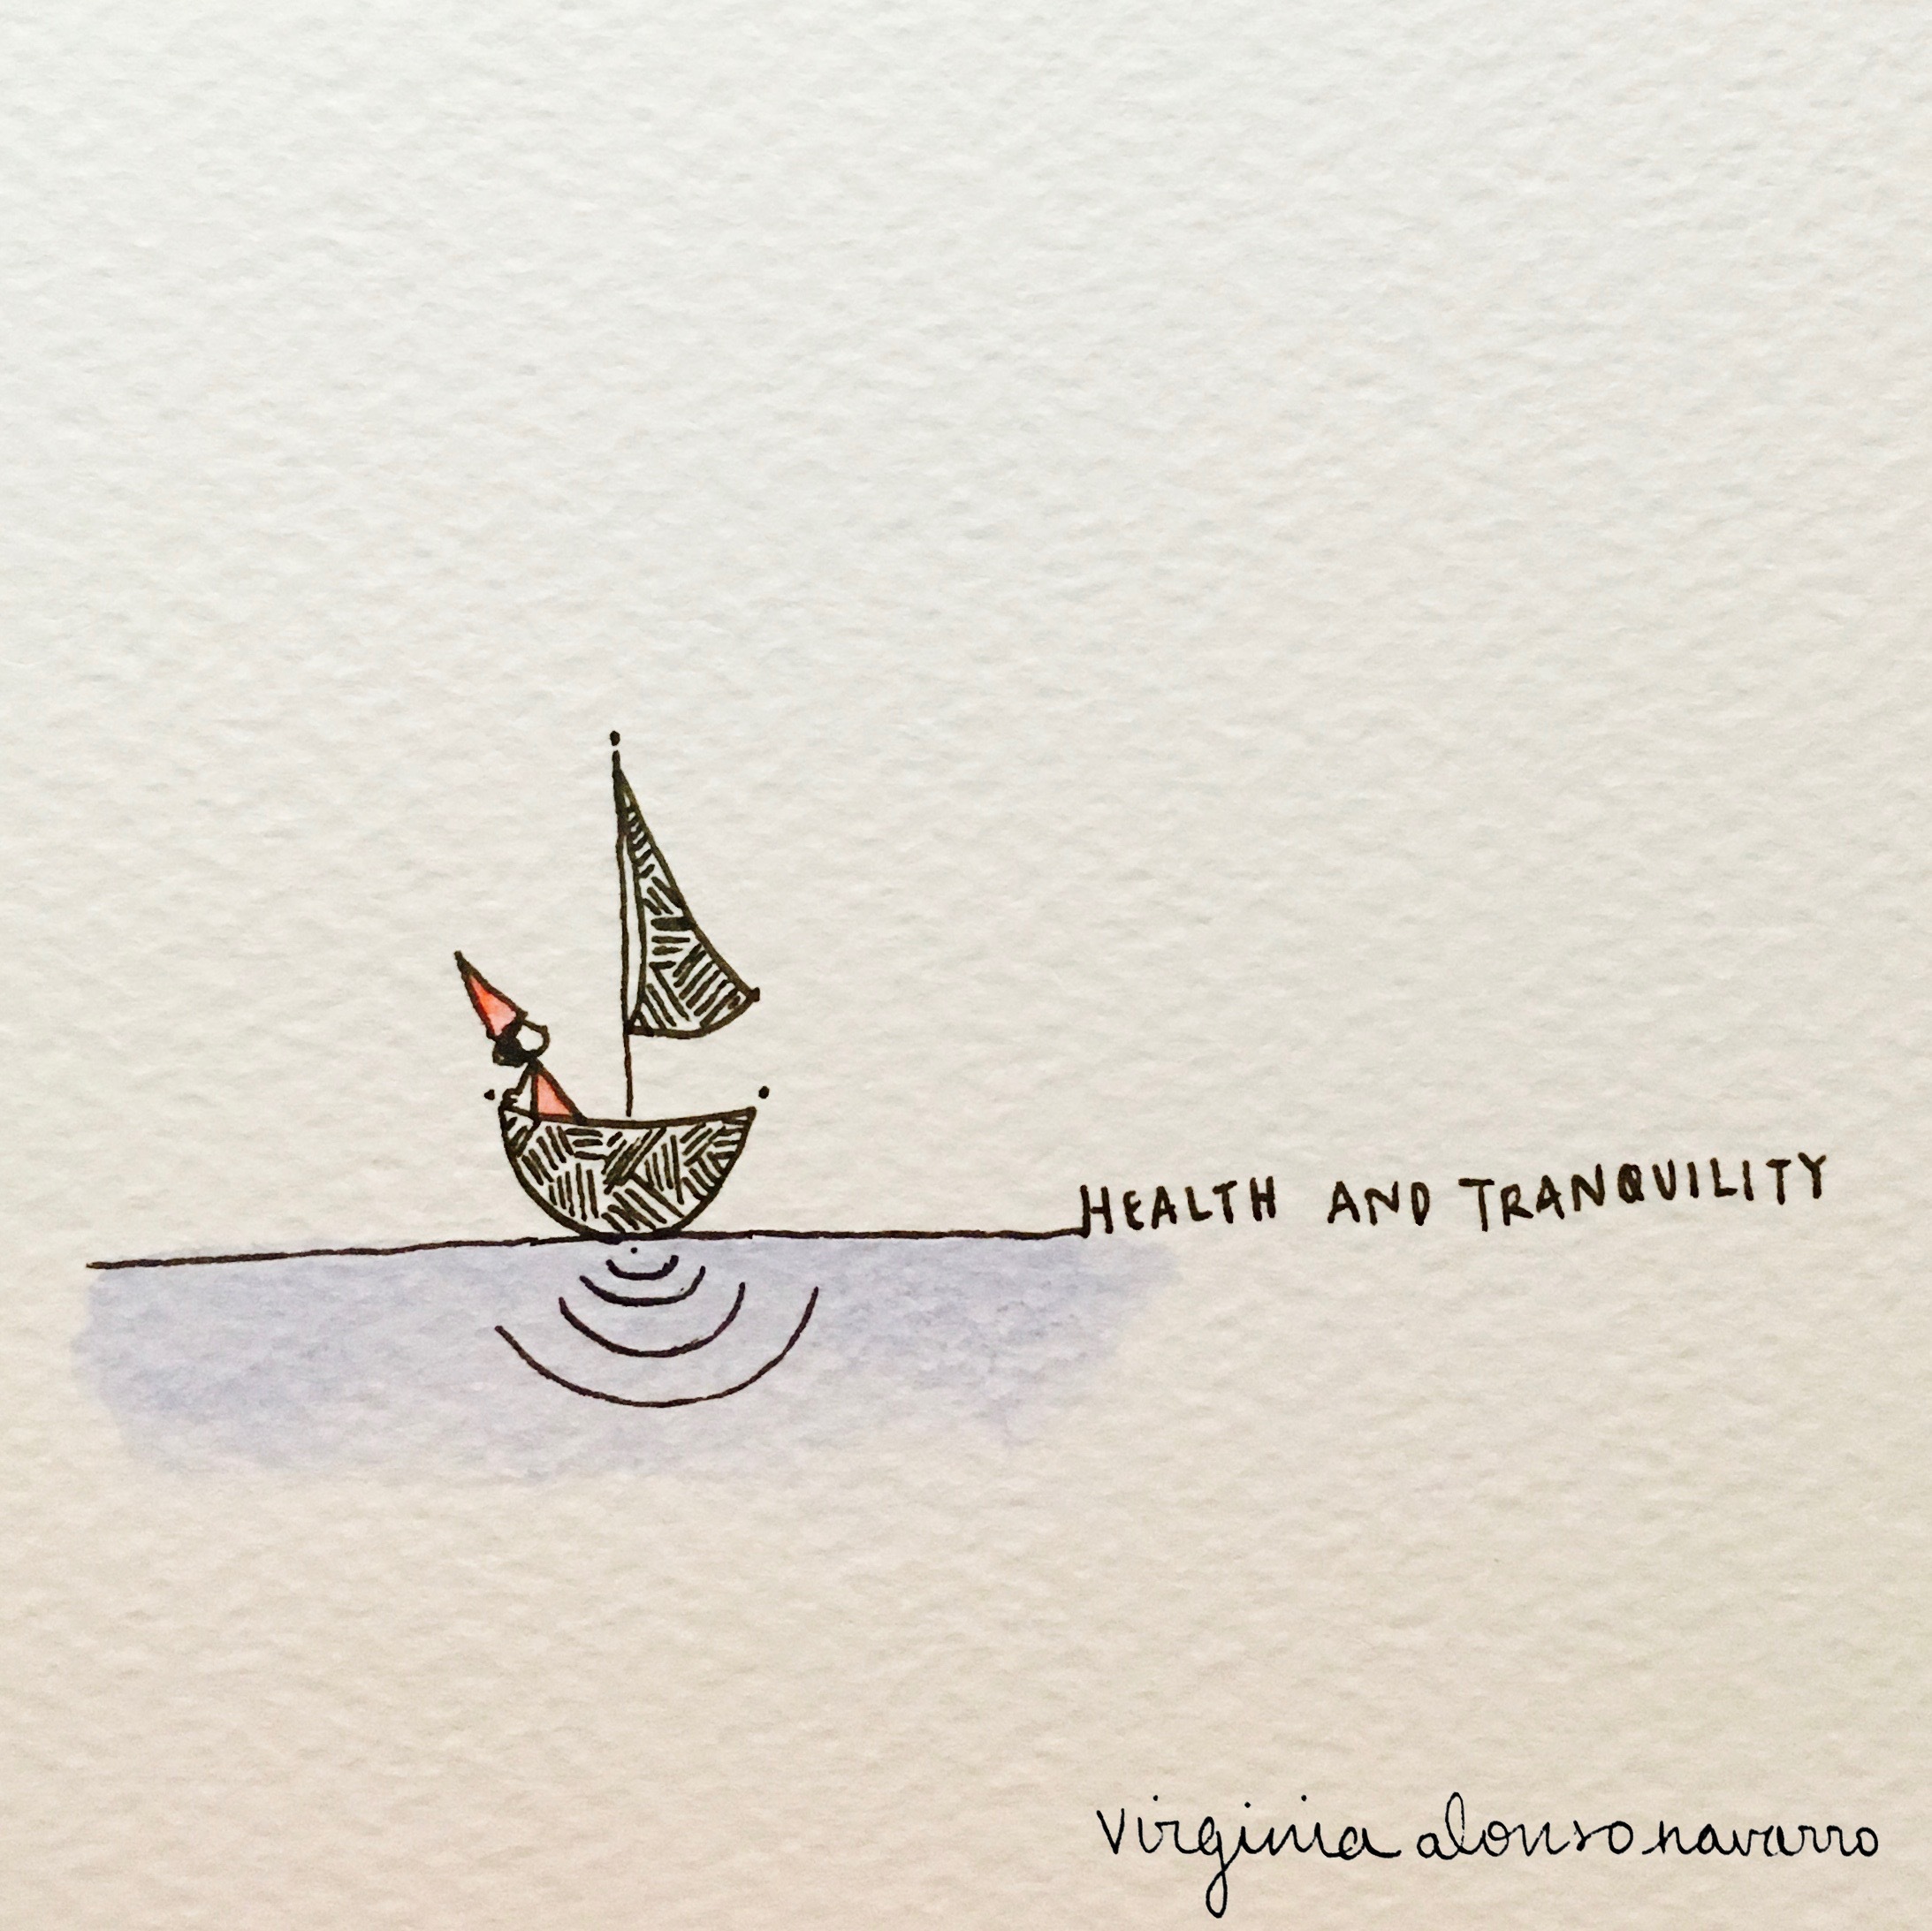 HEALTH AND TRANQUILITY
Virginia alonso navarro